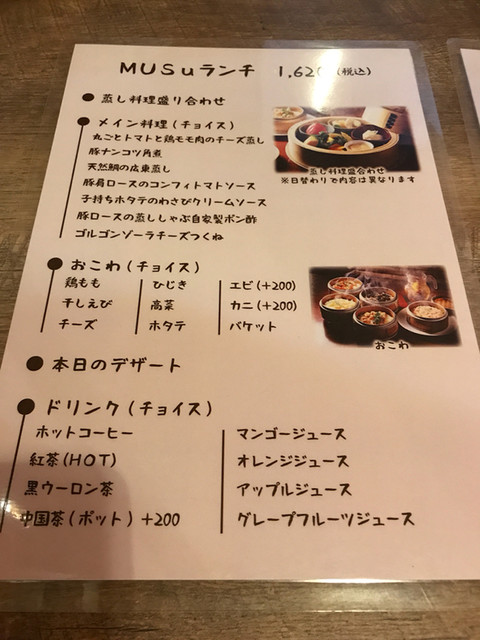 MUSuランチ 1,620 (税込)
● 蒸し料理盛り合わせ
● メイン料理(チョイス)
丸ごとトマトと鶏モモ肉のチーズ蒸し
豚ナンコツ角煮
天然鯛の広東蒸し
豚肩ロースのコンフィトマトソース
子持ちホタテのわさびクリームソース
豚ロースの蒸ししゃぶ自家製ポン酢
ゴルゴンゾーラチーズつくね
蒸し料理盛り合わせ
※日替わりで内容は異なります
● おこわ(チョイス)
鶏もも ひじき エビ(+200)
干しえび 高菜 カニ(+200)
チーズ ホタテ バケット
おこわ
● 本日のデザート
● ドリンク(チョイス)
ホットコーヒー マンゴージュース
紅茶(HOT) オレンジジュース
黒ウーロン茶 アップルジュース
中国茶(ポット)+200 グレープフルーツジュース